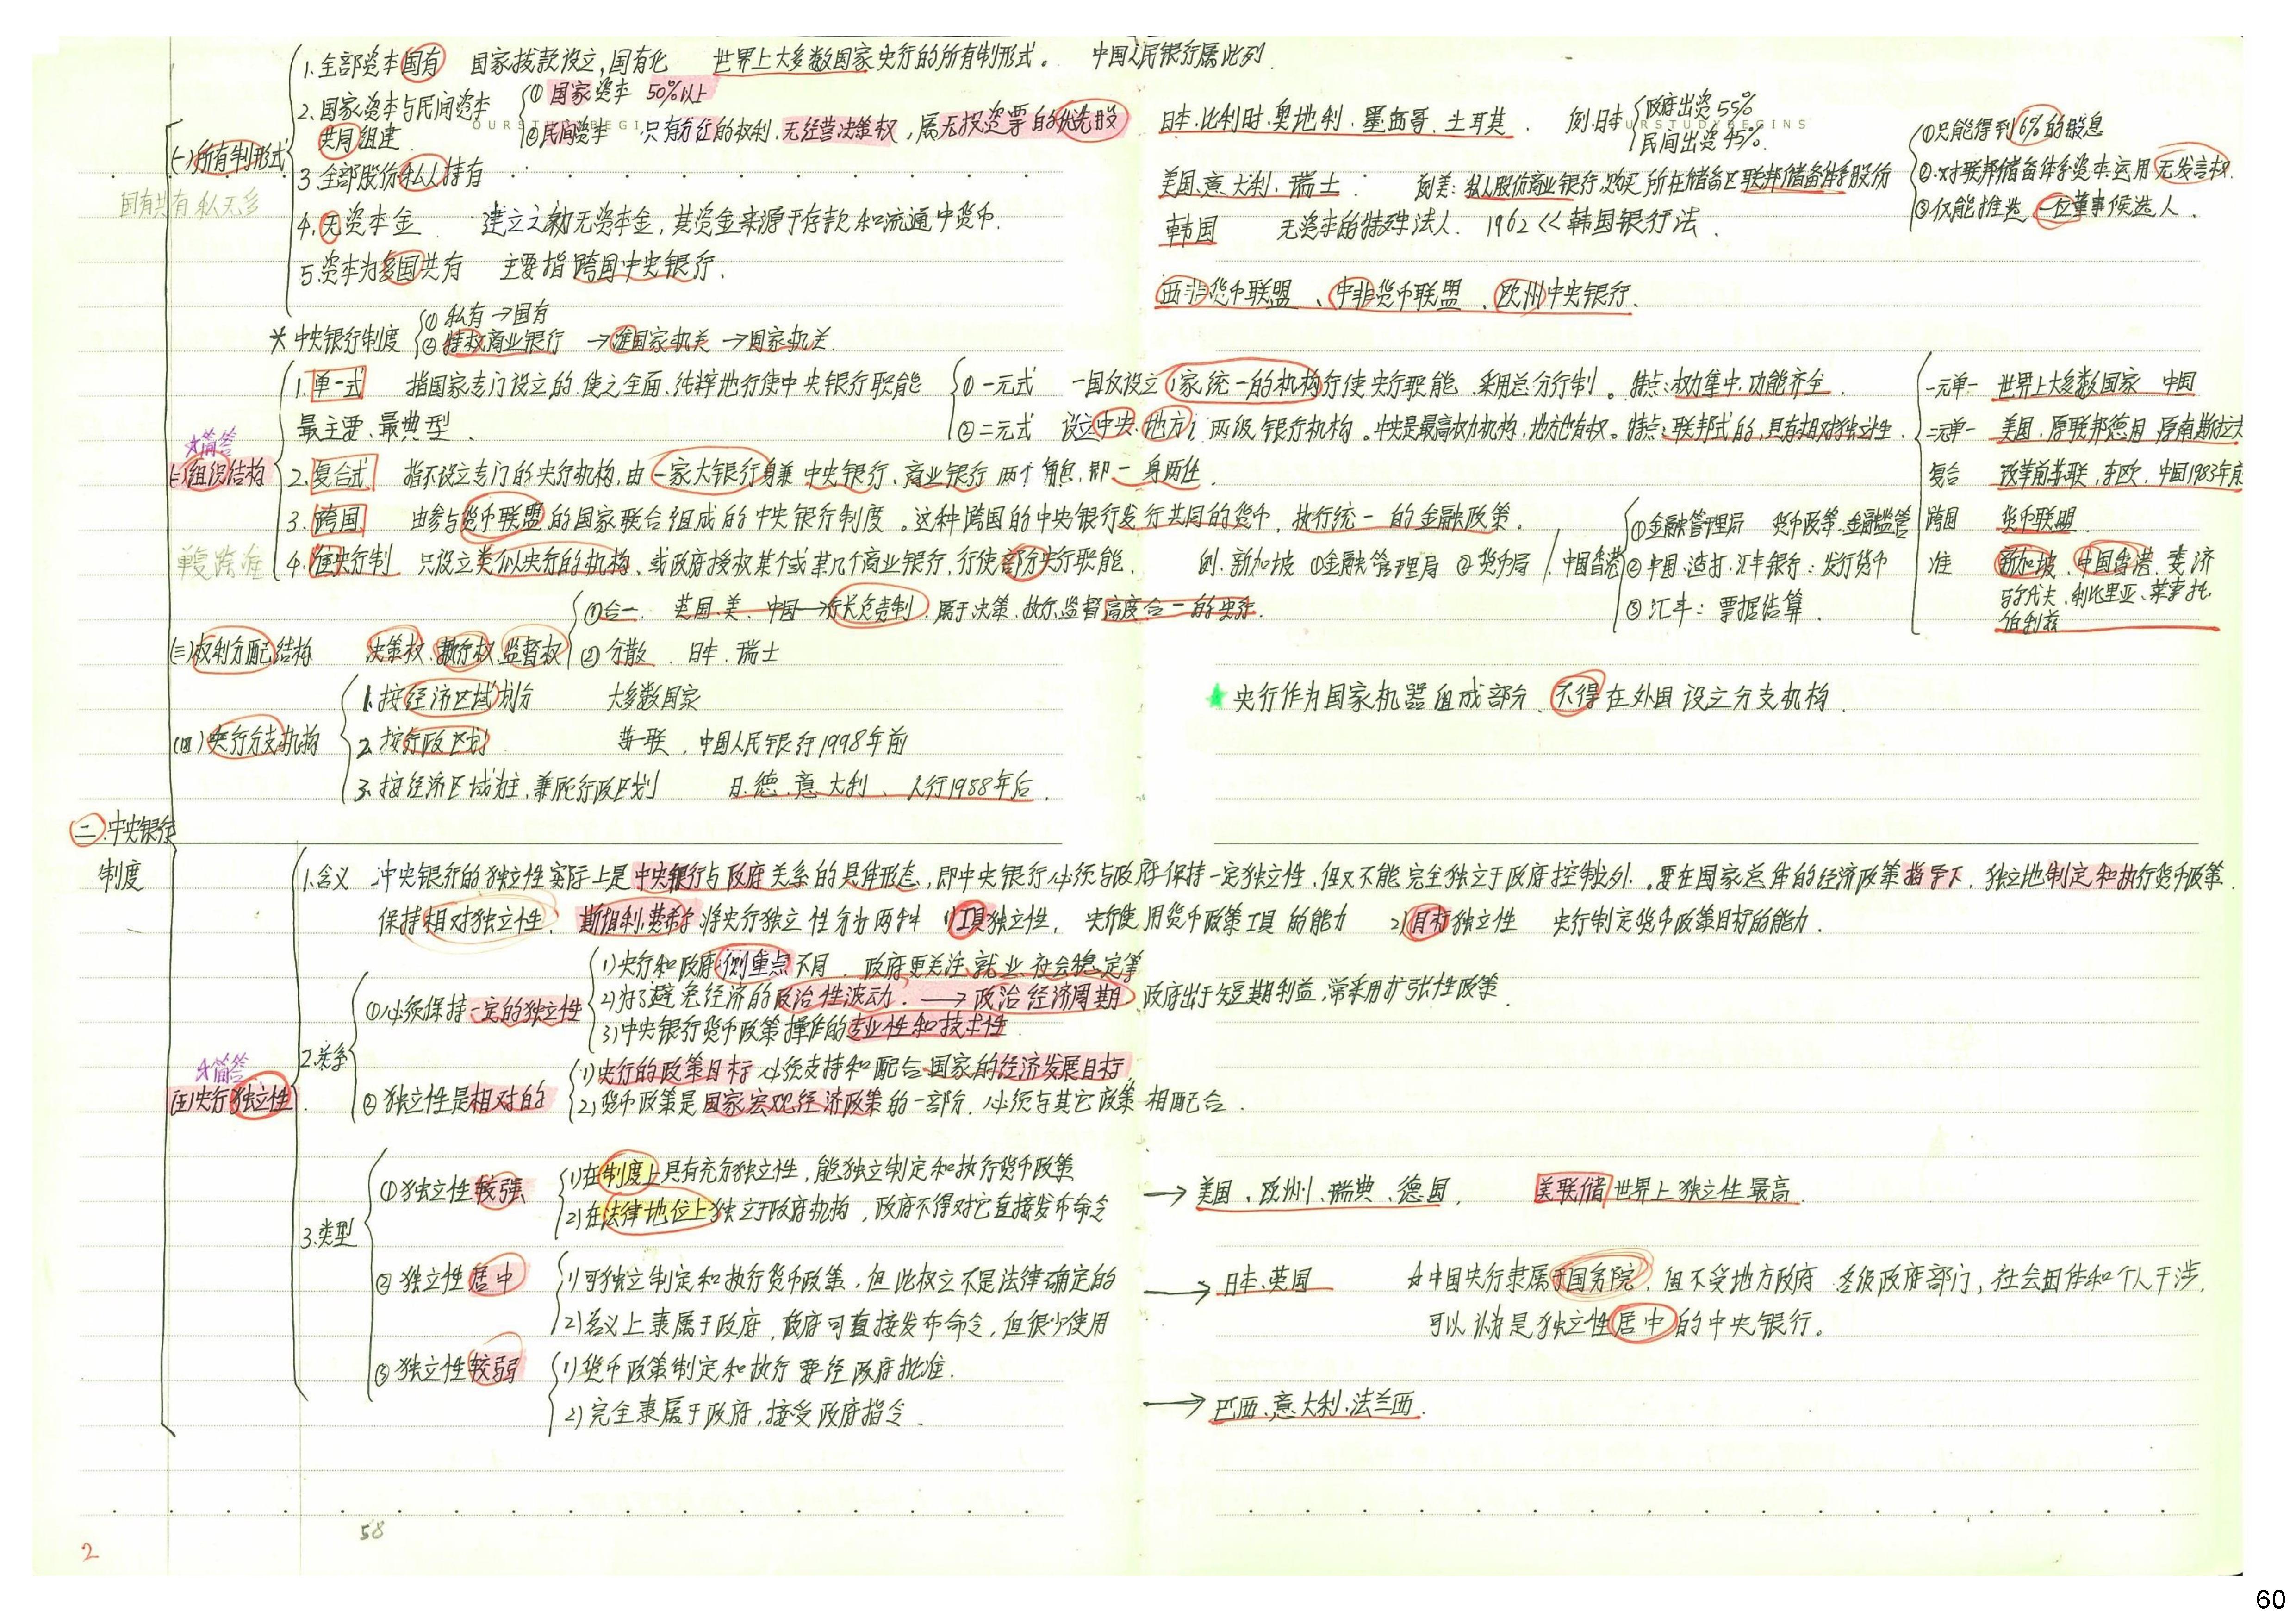 1.全部资本国有 国家拨款设立,国有化 世界上大多数国家央行的所有制形式。 中国人民银行属此列
2.国家资本与民间资本共同组建
①国家资本 50%以上
②民间资本 只有分红的权利,无经营决策权,属无投资票的优先股
日本.比利时.奥地利.墨西哥.土耳其. 例.日本 政府出资55% 民间出资45%.
OURSTUDYBEGINS
URSTUDYBEGINS
(一)所有制形式
国有共有私无多
3.全部股份私人持有
美国.意大利.瑞士. 例美:私人股份商业银行,购买所在储备区联邦储备体系股份
①只能得到6%的股息
②对联邦储备体系资本运用无发言权.
③仅能推选一位董事候选人.
4.无资本金 建立之初无资本金,其资金来源于存款和流通中货币.
韩国 无资本的特殊法人. 1962<<韩国银行法.
5.资本为多国共有 主要指跨国中央银行.
西非货币联盟、中非货币联盟、欧州中央银行.
*中央银行制度 ①私有→国有
②特权商业银行→准国家机关→国家机关.
☆简答
(二)组织结构
单复跨准
1.单一式 指国家专门设立的.使之全面、纯粹地行使中央银行职能
最主要、最典型.
①一元式 一国仅设立1家统一的机构行使央行职能 采用总分行制。特点:权力集中.功能齐全.
②二元式 设立中央、地方 两级银行机构。中央是最高权力机构,地方也有权。特点:联邦式的,具有相对独立性.
一元单一 世界上大多数国家 中国
二元单一 美国.原联邦德国 原南斯拉夫
2.复合式 指不设立专门的央行机构,由一家大银行身兼中央银行、商业银行两个角色,即一身两任.
复合 改革前苏联,东欧,中国1983年前
3.跨国 由参与货币联盟的国家联合组成的中央银行制度。这种跨国的中央银行发行共同的货币,执行统一的金融政策.
跨国 货币联盟.
4.准央行制 只设立类似央行的机构、或政府授权某个或某几个商业银行,行使部分央行职能.
例.新加坡 ①金融管理局 ②货币局 / 中国香港
①金融管理局 货币政策.金融监管
②中国.渣打.汇丰银行:发行货币
③汇丰:票据结算.
准 新加坡、中国香港、斐济
马尔代夫.利比里亚、莱索托.
伯利兹
(三)权利分配结构 决策权.执行权.监督权
①合一. 英国.美.中国→行长负责制.属于决策、执行.监督高度合一的央行.
②分散. 日本.瑞士
(四)央行分支机构
1.按经济区域划分 大多数国家
★央行作为国家机器组成部分、不得在外国设立分支机构.
2.按行政区划 苏联,中国人民银行1998年前
3.按经济区域为主、兼顾行政区划 日.德.意大利、人行1988年后.
二.中央银行制度
☆简答
(五)央行独立性
1.含义 中央银行的独立性实际上是中央银行与政府关系的具体形态,即中央银行必须与政府保持一定独立性,但又不能完全独立于政府控制之外.。要在国家总体的经济政策指导下,独立地制定和执行货币政策.
保持相对独立性. 斯坦利.费希尔将央行独立性分为两种 1)工具独立性, 央行使用货币政策工具的能力 2)目标独立性 央行制定货币政策目标的能力.
2.关系
①必须保持一定的独立性
1)央行和政府侧重点不同. 政府更关注就业、社会稳定等
2)为了避免经济的政治性波动.→政治经济周期 政府出于短期利益,常采用扩张性政策.
3)中央银行货币政策操作的专业性和技术性.
②独立性是相对的
1)央行的政策目标必须支持和配合国家的经济发展目标
2)货币政策是国家宏观经济政策的一部分.必须与其它政策相配合.
3.类型
①独立性较强
1)在制度上具有充分独立性,能独立制定和执行货币政策
2)在法律地位上独立于政府机构,政府不得对它直接发布命令
→美国、欧州、瑞典、德国. 美联储世界上独立性最高.
②独立性居中
1)可独立制定和执行货币政策,但此权立不是法律确定的
2)名义上隶属于政府,政府可直接发布命令,但很少使用
→日本.英国 ☆中国央行隶属于国务院,但不受地方政府 各级政府部门,社会团体和个人干涉,
可以认为是独立性居中的中央银行。
③独立性较弱
1)货币政策制定和执行要经政府批准.
2)完全隶属于政府,接受政府指令.
→巴西、意大利、法兰西.
58
2
60